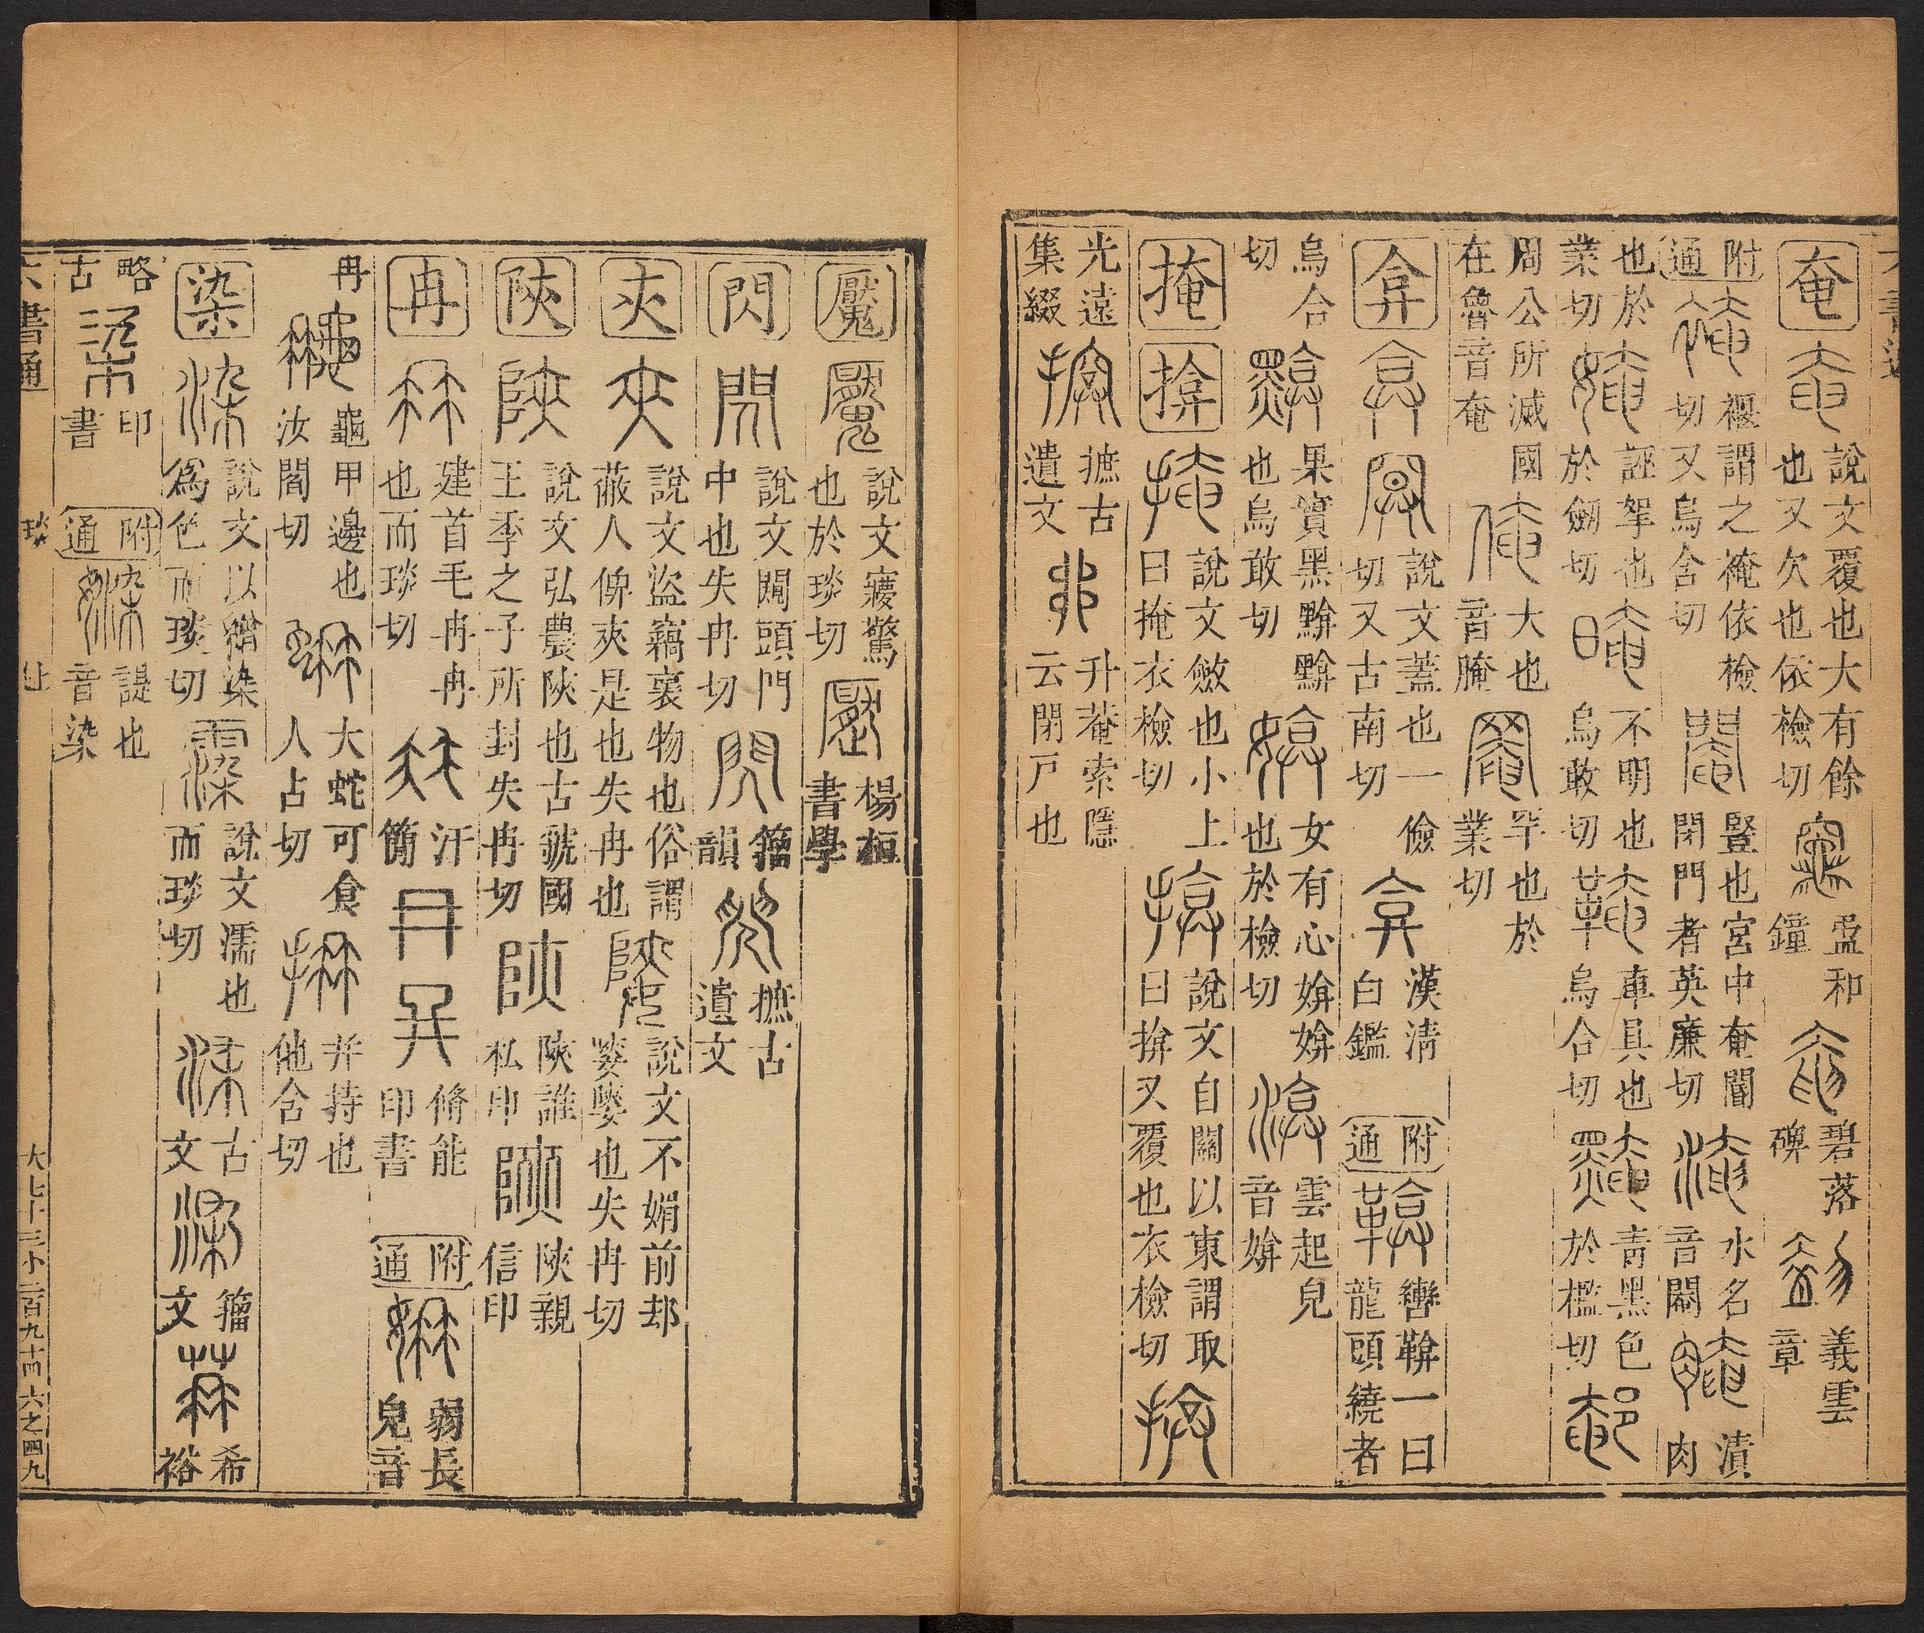 奄 說文覆也大有餘也又欠也依檢切 盄和鐘 碧落碑 義雲章
附通 褗謂之裺依檢切又烏含切 豎也宮中奄閽閉門者英廉切 水名音閹 漬肉
也於業切 誣挐也於劒切 不明也烏敢切 車具也烏合切 靑黑色於檻切
周公所滅國在魯音奄 大也音腌 罕也於業切
弇 說文蓋也一儉切又古南切 漢淸白鑑 附通 轡鞥一曰龍頭繞者
烏合切 果實黑黭黭也烏敢切 女有心媕媕也於檢切 雲起皃音媕
掩 揜 說文斂也小上曰掩衣檢切 說文自關以東謂取曰揜又覆也衣檢切
光遠集綴 摭古遺文 升菴索隱云閉戸也
魘 說文寢驚也於琰切 楊桓書學
閃 說文闚頭門中也失冉切 籀韻 摭古遺文
㚒 說文盜竊褱物也俗謂蔽人俾㚒是也失冉也 說文不媚前却㜕㜕也失冉切
陝 說文弘農陝也古虢國王季之子所封失冉切 陝誰私印 陝親信印
冉 建首毛冉冉也而琰切 汗簡 脩能印書 附通 弱長皃音
冉 龜甲邊也汝閻切 大蛇可食人占切 幷持也他含切
染 說文以繒染爲色而琰切 說文濡也而琰切 古文 籀文 希裕
略古 印書 附通 諟也音染
六書通 琰 上 大七十三小二百九十四 六之四九